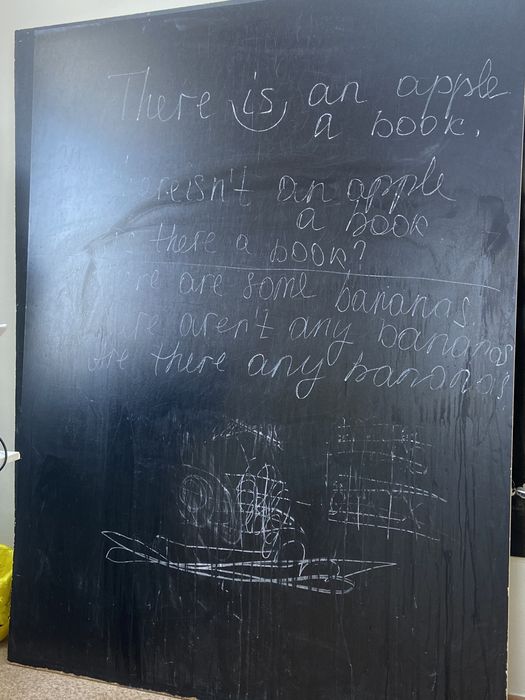 There is an apple.
a book.
isn't an apple
a book
there a book?
are some bananas.
aren't any bananas
Are there any bananas?